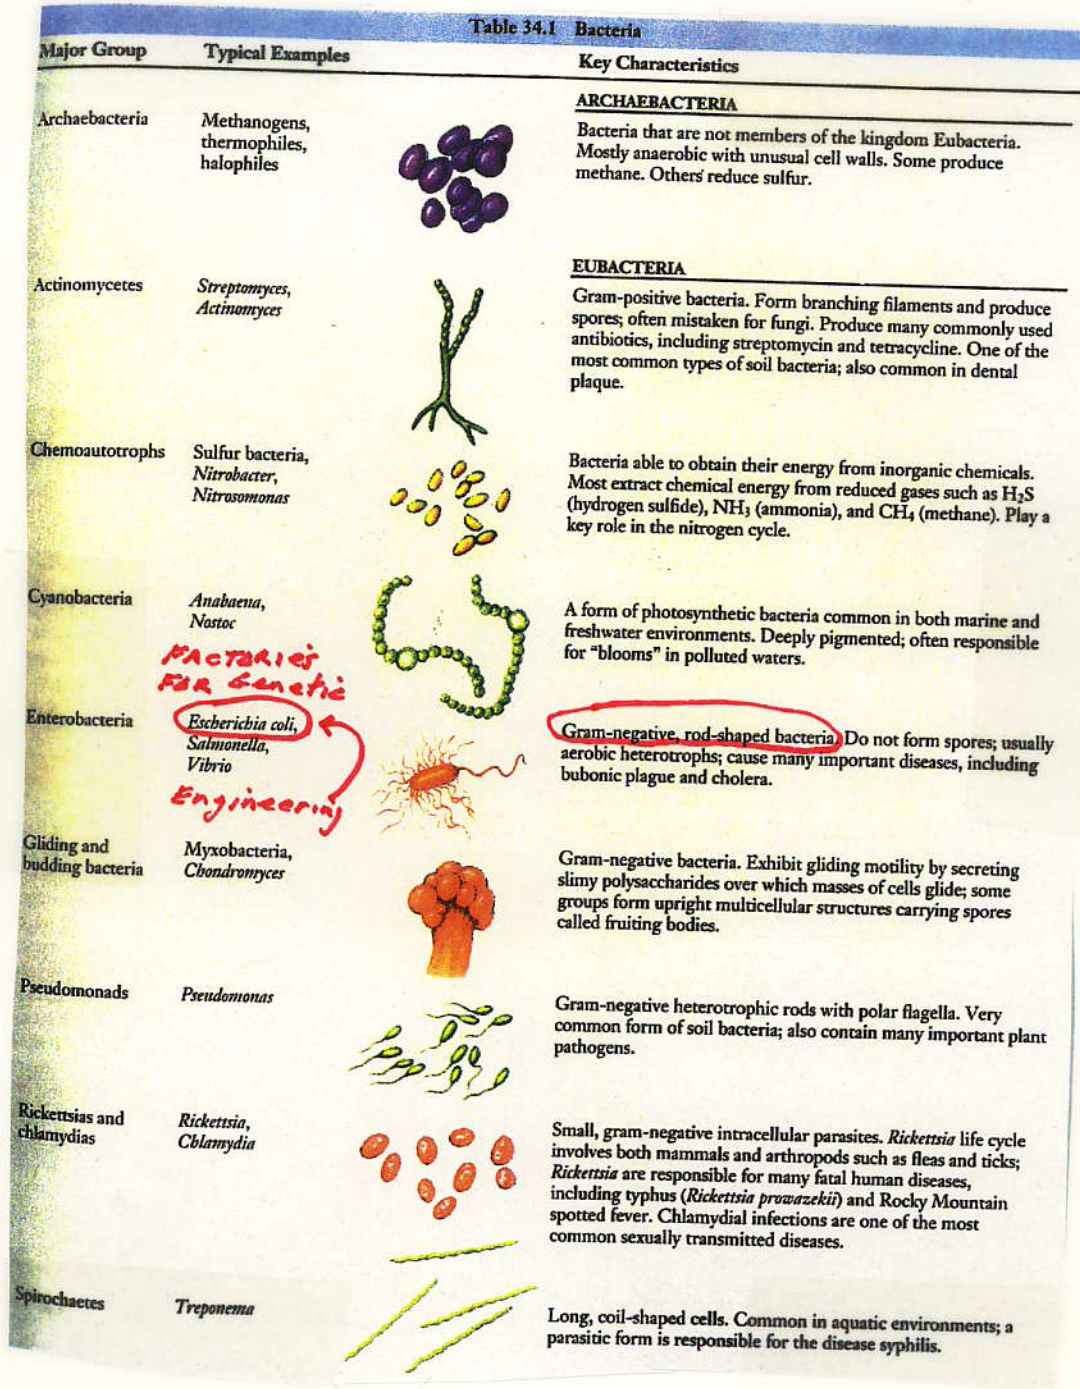 Table 34.1 Bacteria
Major Group Typical Examples Key Characteristics
ARCHAEBACTERIA
Archaebacteria
Methanogens,
thermophiles,
halophiles
Bacteria that are not members of the kingdom Eubacteria.
Mostly anaerobic with unusual cell walls. Some produce
methane. Others reduce sulfur.
EUBACTERIA
Actinomycetes
Streptomyces,
Actinomyces
Gram-positive bacteria. Form branching filaments and produce
spores; often mistaken for fungi. Produce many commonly used
antibiotics, including streptomycin and tetracycline. One of the
most common types of soil bacteria; also common in dental
plaque.
Chemoautotrophs
Sulfur bacteria,
Nitrobacter,
Nitrosomonas
Bacteria able to obtain their energy from inorganic chemicals.
Most extract chemical energy from reduced gases such as H₂S
(hydrogen sulfide), NH₃ (ammonia), and CH₄ (methane). Play a
key role in the nitrogen cycle.
Cyanobacteria
Anabaena,
Nostoc
A form of photosynthetic bacteria common in both marine and
freshwater environments. Deeply pigmented; often responsible
for "blooms" in polluted waters.
FACTORIES
FOR Genetic
Enterobacteria
Escherichia coli,
Salmonella,
Vibrio
Engineering
Gram-negative, rod-shaped bacteria. Do not form spores; usually
aerobic heterotrophs; cause many important diseases, including
bubonic plague and cholera.
Gliding and
budding bacteria
Myxobacteria,
Chondromyces
Gram-negative bacteria. Exhibit gliding motility by secreting
slimy polysaccharides over which masses of cells glide; some
groups form upright multicellular structures carrying spores
called fruiting bodies.
Pseudomonads
Pseudomonas
Gram-negative heterotrophic rods with polar flagella. Very
common form of soil bacteria; also contain many important plant
pathogens.
Rickettsias and
chlamydias
Rickettsia,
Chlamydia
Small, gram-negative intracellular parasites. Rickettsia life cycle
involves both mammals and arthropods such as fleas and ticks;
Rickettsia are responsible for many fatal human diseases,
including typhus (Rickettsia prowazekii) and Rocky Mountain
spotted fever. Chlamydial infections are one of the most
common sexually transmitted diseases.
Spirochaetes
Treponema
Long, coil-shaped cells. Common in aquatic environments; a
parasitic form is responsible for the disease syphilis.